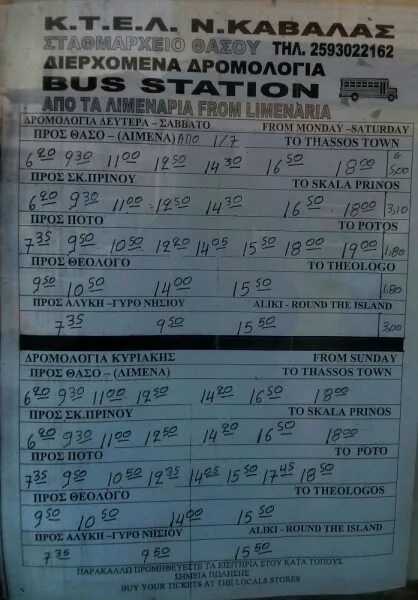 Κ.Τ.Ε.Λ. Ν.ΚΑΒΑΛΑΣ
ΣΤΑΘΜΑΡΧΕΙΟ ΘΑΣΟΥ ΤΗΛ. 2593022162
ΔΙΕΡΧΟΜΕΝΑ ΔΡΟΜΟΛΟΓΙΑ
BUS STATION
ΑΠΟ ΤΑ ΛΙΜΕΝΑΡΙΑ FROM LIMENARIA
ΔΡΟΜΟΛΟΓΙΑ ΔΕΥΤΕΡΑ - ΣΑΒΒΑΤΟ FROM MONDAY -SATURDAY
ΠΡΟΣ ΘΑΣΟ – (ΛΙΜΕΝΑ) ΑΠΟ 1/7 TO THASSOS TOWN
6 20 9 30 11 00 12 50 14 30 16 50 18 00 5,00
ΠΡΟΣ ΣΚ.ΠΡΙΝΟΥ TO SKALA PRINOS
6 20 9 30 11 00 12 50 14 30 16 50 18 00 3,10
ΠΡΟΣ ΠΟΤΟ TO POTOS
7 35 9 50 10 50 12 20 14 05 15 50 18 00 19 00 1,80
ΠΡΟΣ ΘΕΟΛΟΓΟ TO THEOLOGO
9 50 10 50 14 00 15 50 1,80
ΠΡΟΣ ΑΛΥΚΗ –ΓΥΡΟ ΝΗΣΙΟΥ ALIKI - ROUND THE ISLAND
7 35 9 50 15 50 3,00
ΔΡΟΜΟΛΟΓΙΑ ΚΥΡΙΑΚΗΣ FROM SUNDAY
ΠΡΟΣ ΘΑΣΟ – (ΛΙΜΕΝΑ) TO THASSOS TOWN
6 20 9 30 11 00 12 50 14 20 16 50 18 00
ΠΡΟΣ ΣΚ.ΠΡΙΝΟΥ TO SKALA PRINOS
6 20 9 30 11 00 12 50 14 20 16 50 18 00
ΠΡΟΣ ΠΟΤΟ TO POTO
7 35 9 50 10 50 12 35 14 05 15 50 17 45 18 50
ΠΡΟΣ ΘΕΟΛΟΓΟ TO THEOLOGOS
9 50 10 50 14 00 15 50
ΠΡΟΣ ΑΛΥΚΗ –ΓΥΡΟ ΝΗΣΙΟΥ ALIKI - ROUND THE ISLAND
7 35 9 50 15 50
ΠΑΡΑΚΑΛΩ ΠΡΟΜΗΘΕΥΕΣΤΕ ΤΑ ΕΙΣΙΤΗΡΙΑ ΣΤΟΥ ΚΑΤΑ ΤΟΠΟΥΣ
ΣΗΜΕΙΑ ΠΩΛΗΣΗΣ
BUY YOUR TICKETS AT THE LOCALS STORES